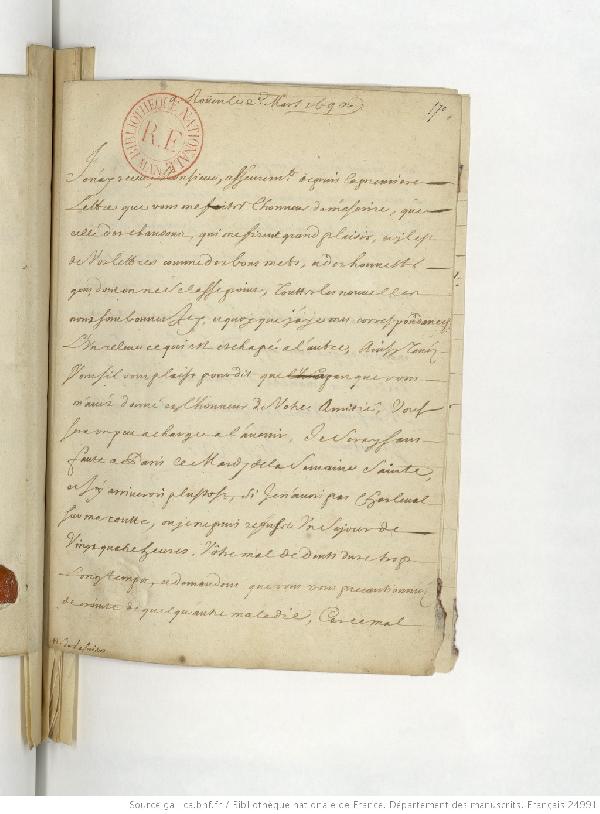 Rouen le 2e Mars 1692
170
BIBLIOTHEQUE NATIONALE
R.F.
Je n'ay receu, Monsieur, asseurement depuis la premiere
Lettre que vous me fistes l'honneur de m'escrire, que
celle des chansons, qui me firent grand plaisir, il est
de Vos lettres comme des bons mets, et des honnestes
gens, dont on ne se lasse point, Touttes les nouvelles
sont bonnes Icy, et quoy que j'aye mes correspondances
L'Un releve ce qui est eschapé a l'autre, Ainsy
s'il vous plaist pour dit que que vous
m'avez donné l'honneur de Vostre Amitié,
un peu a charge a l'avenir, Je Seray sans
faute a Paris le Mardy de la Semaine Sainte,
et j'y arriverois plustost, Si Je n'avois pas Charleval
sur ma routte, ou je ne puis refuser Un Sejour de
Vingt quatre heures. Votre mal de Dents dure trop
Longtemps, et demandons que vous vous precautionniez
de quelqu'autre maladie, Car ce mal
Source gallica.bnf.fr / Bibliothèque nationale de France. Département des manuscrits. Français 24991